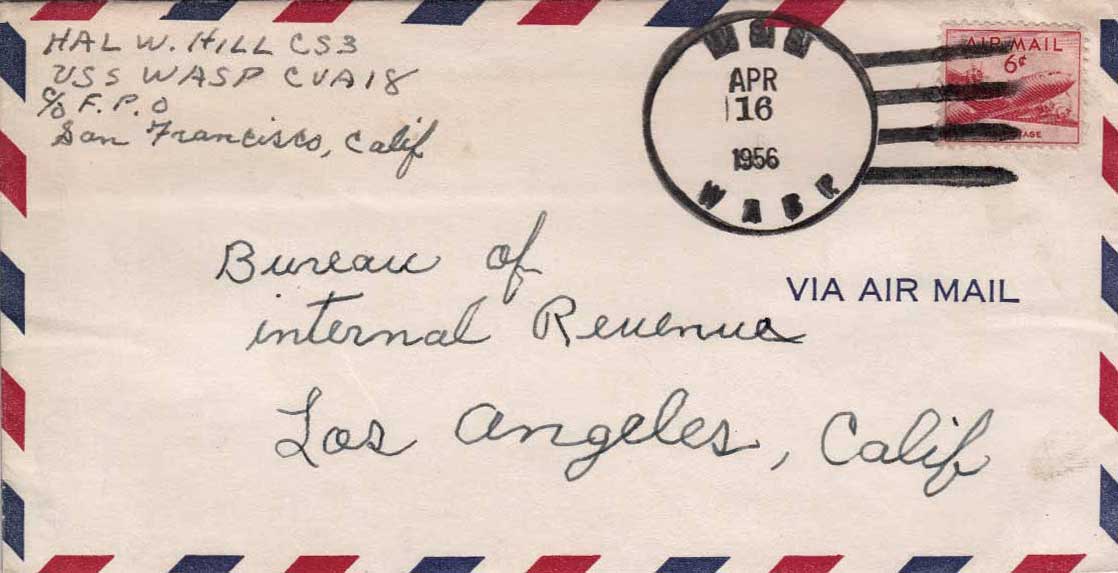 HAL W. HILL CS3
USS WASP CVA18
c/o F.P.O
San Francisco, Calif
USS
APR
16
1956
WASP
AIR MAIL
6¢
VIA AIR MAIL
Bureau of
internal Revenue
Los Angeles, Calif